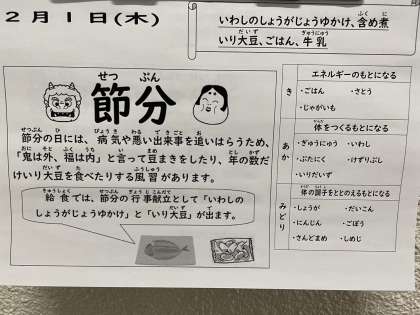 2月1日(木)
いわしのしょうがじょうゆかけ、含め煮
いり大豆、ごはん、牛乳
節分
節分の日には、病気や悪い出来事を追いはらうため、
「鬼は外、福は内」と言って豆まきをしたり、年の数だ
けいり大豆を食べたりする風習があります。
給食では、節分の行事献立として「いわしの
しょうがじょうゆかけ」と「いり大豆」が出ます。
き
エネルギーのもとになる
・ごはん ・さとう
・じゃがいも
あか
体をつくるもとになる
・ぎゅうにゅう ・いわし
・ぶたにく ・けずりぶし
・いりだいず
みどり
体の調子をととのえるもとになる
・しょうが ・だいこん
・にんじん ・ごぼう
・さんどまめ ・しめじ